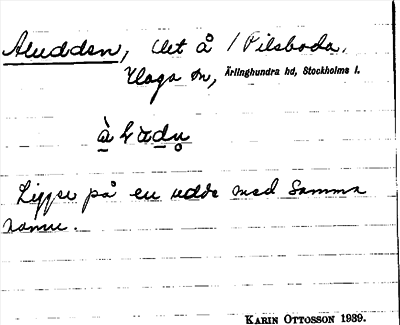 Aludden, det å / Pilsboda,
Haga sn, Ärlinghundra hd, Stockholms l.
Ligger på en udde med samma
namn.
KARIN OTTOSSON 1939.